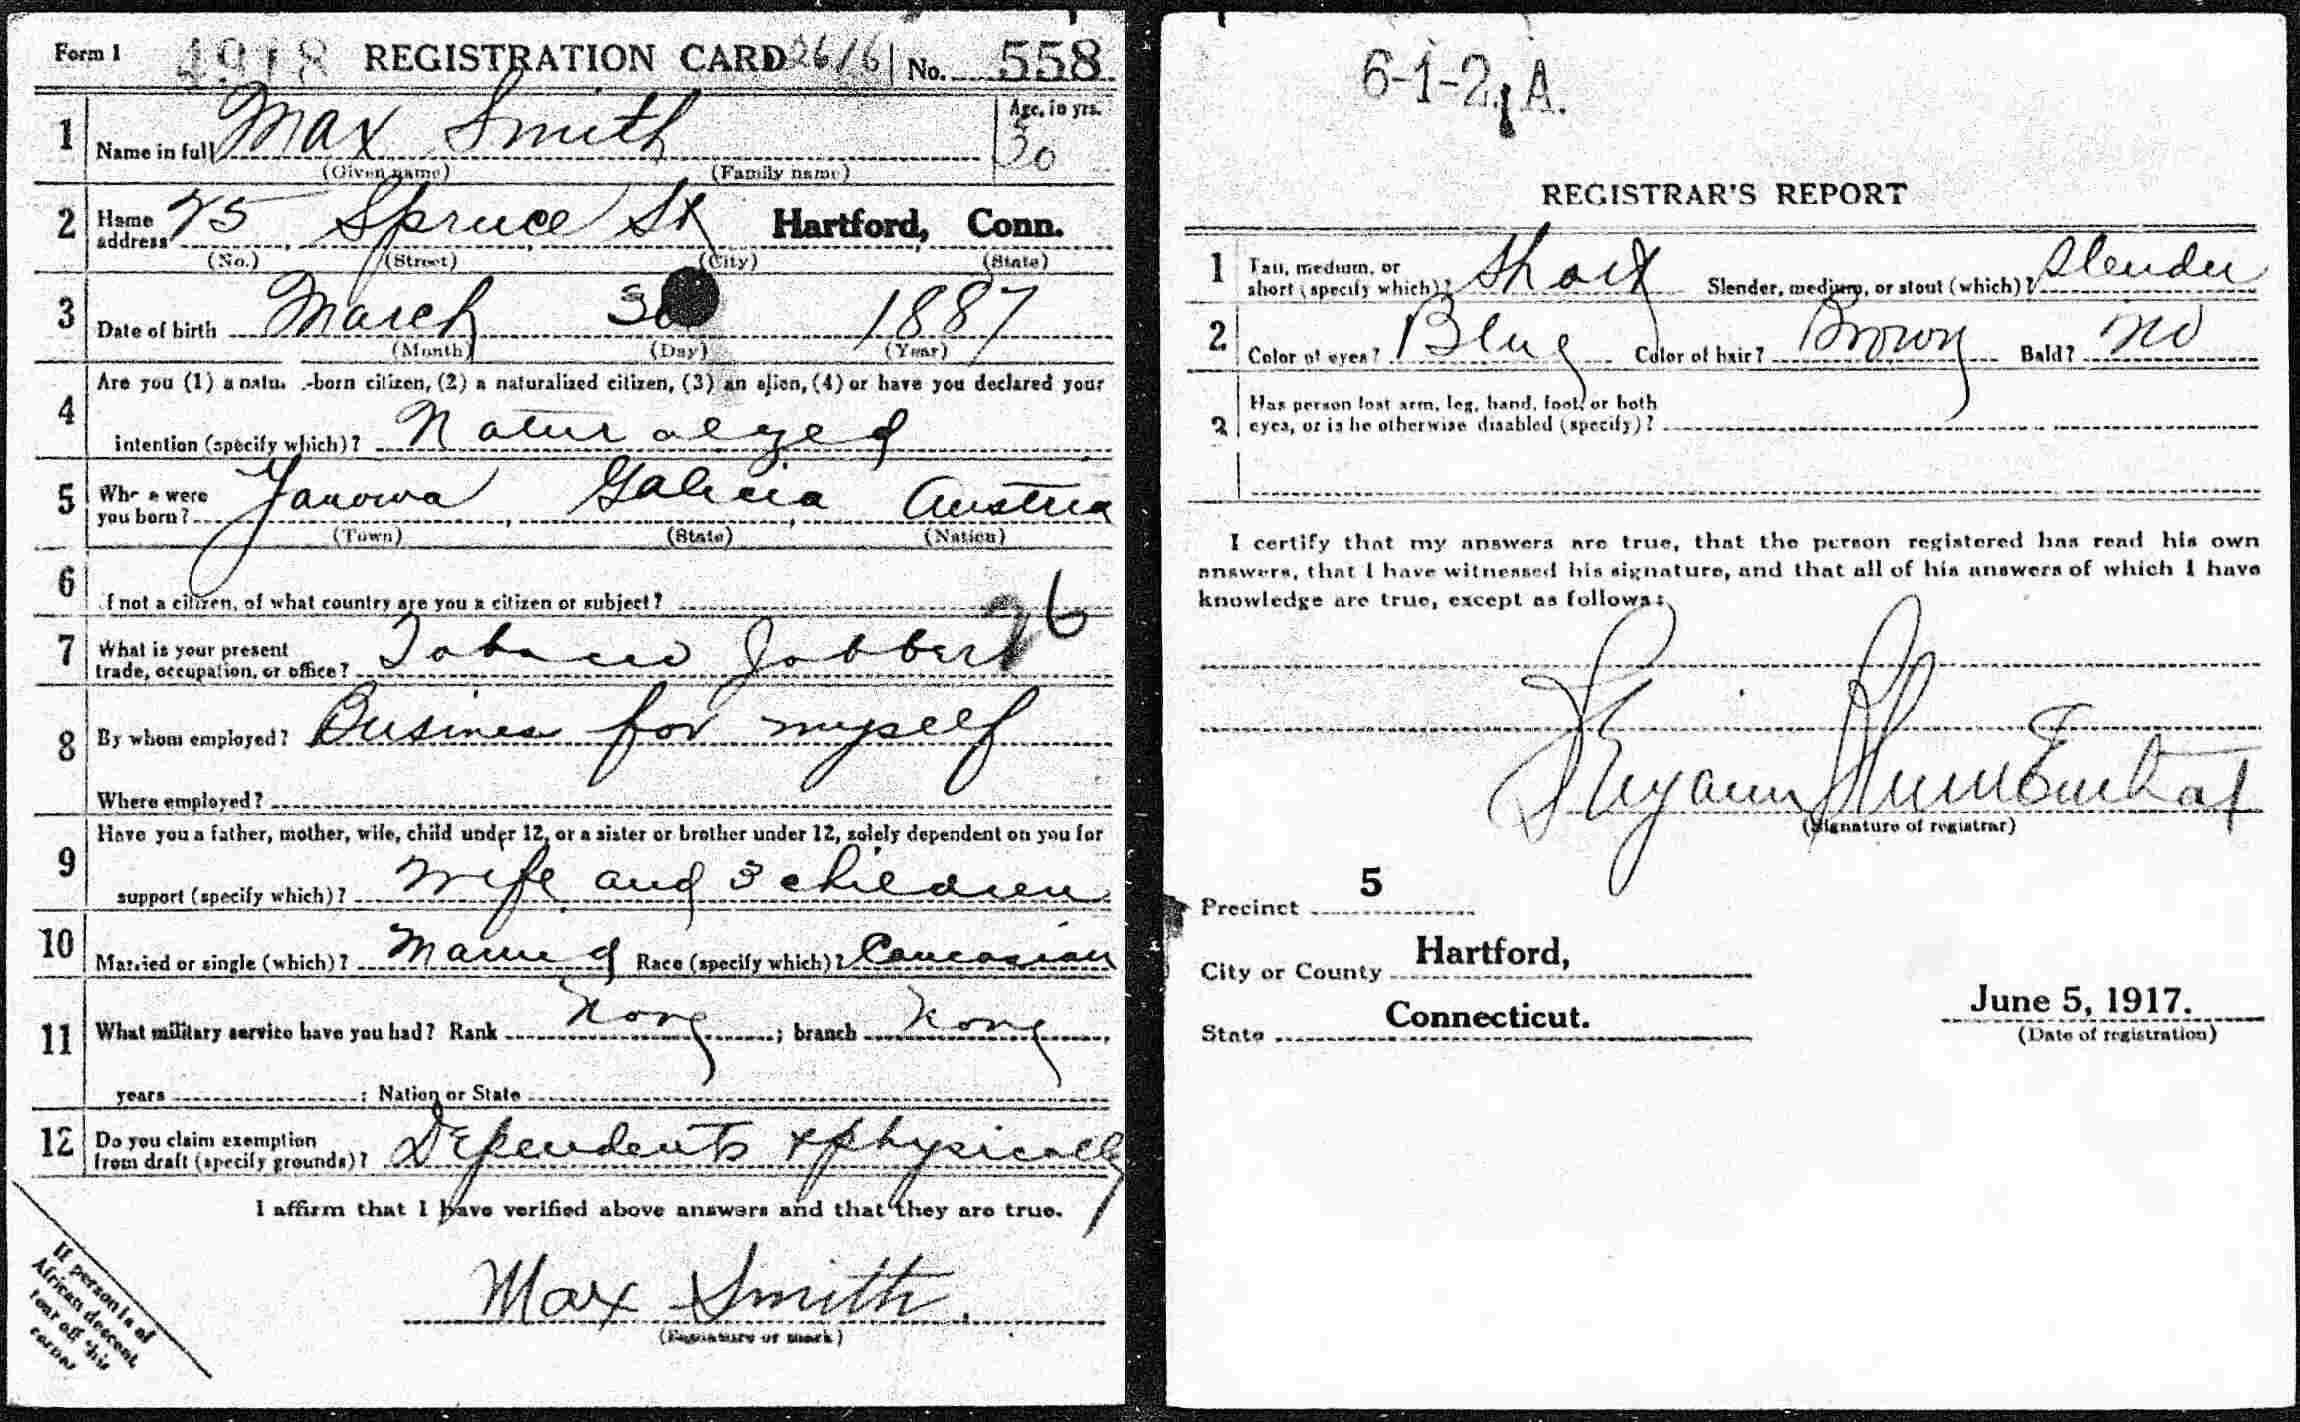 Form 1 4918 REGISTRATION CARD 26/6 No. 558
1 Name in full Max Smith Age, in yrs. 30
(Given name) (Family name)
2 Home address 75 Spruce St Hartford, Conn.
(No.) (Street) (City) (State)
3 Date of birth March 30 1887
(Month) (Day) (Year)
4 Are you (1) a natu. -born citizen, (2) a naturalized citizen, (3) an alien, (4) or have you declared your
intention (specify which)? Naturalyzed
5 Where were you born? Yanowa Galicia Austria
(Town) (State) (Nation)
6 If not a citizen, of what country are you a citizen or subject?
26
7 What is your present
trade, occupation, or office? Tobacco Jobber
8 By whom employed? Business for myself
Where employed?
9 Have you a father, mother, wife, child under 12, or a sister or brother under 12, solely dependent on you for
support (specify which)? Wife and 3 children
10 Married or single (which)? Married Race (specify which)? Caucasian
11 What military service have you had? Rank None ; branch None
years ; Nation or State
12 Do you claim exemption
from draft (specify grounds)? Dependents & physically
I affirm that I have verified above answers and that they are true.
Max Smith.
(Signature or mark)
If person is of
African descent,
tear off this
corner
6-1-2. A.
REGISTRAR'S REPORT
1 Tall, medium, or
short (specify which)? Short Slender, medium, or stout (which)? Slender
2 Color of eyes? Blue Color of hair? Brown Bald? No
3 Has person lost arm, leg, hand, foot, or both
eyes, or is he otherwise disabled (specify)?
I certify that my answers are true, that the person registered has read his own
answers, that I have witnessed his signature, and that all of his answers of which I have
knowledge are true, except as follows:
(Signature of registrar)
Precinct 5
City or County Hartford,
State Connecticut.
June 5, 1917.
(Date of registration)